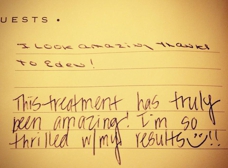 UESTS •
I look amazing thanks
To Eden!
This treatment has truly
been amazing! I'm so
thrilled w/my results!!